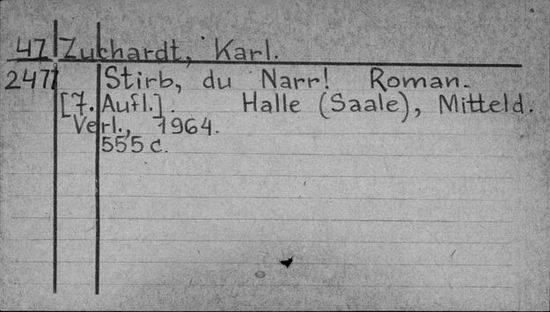 47 Zuchardt, Karl.
2477 Stirb, du Narr! Roman.
[7. Aufl.]. Halle (Saale), Mitteld.
Verl., 1964.
555 c.